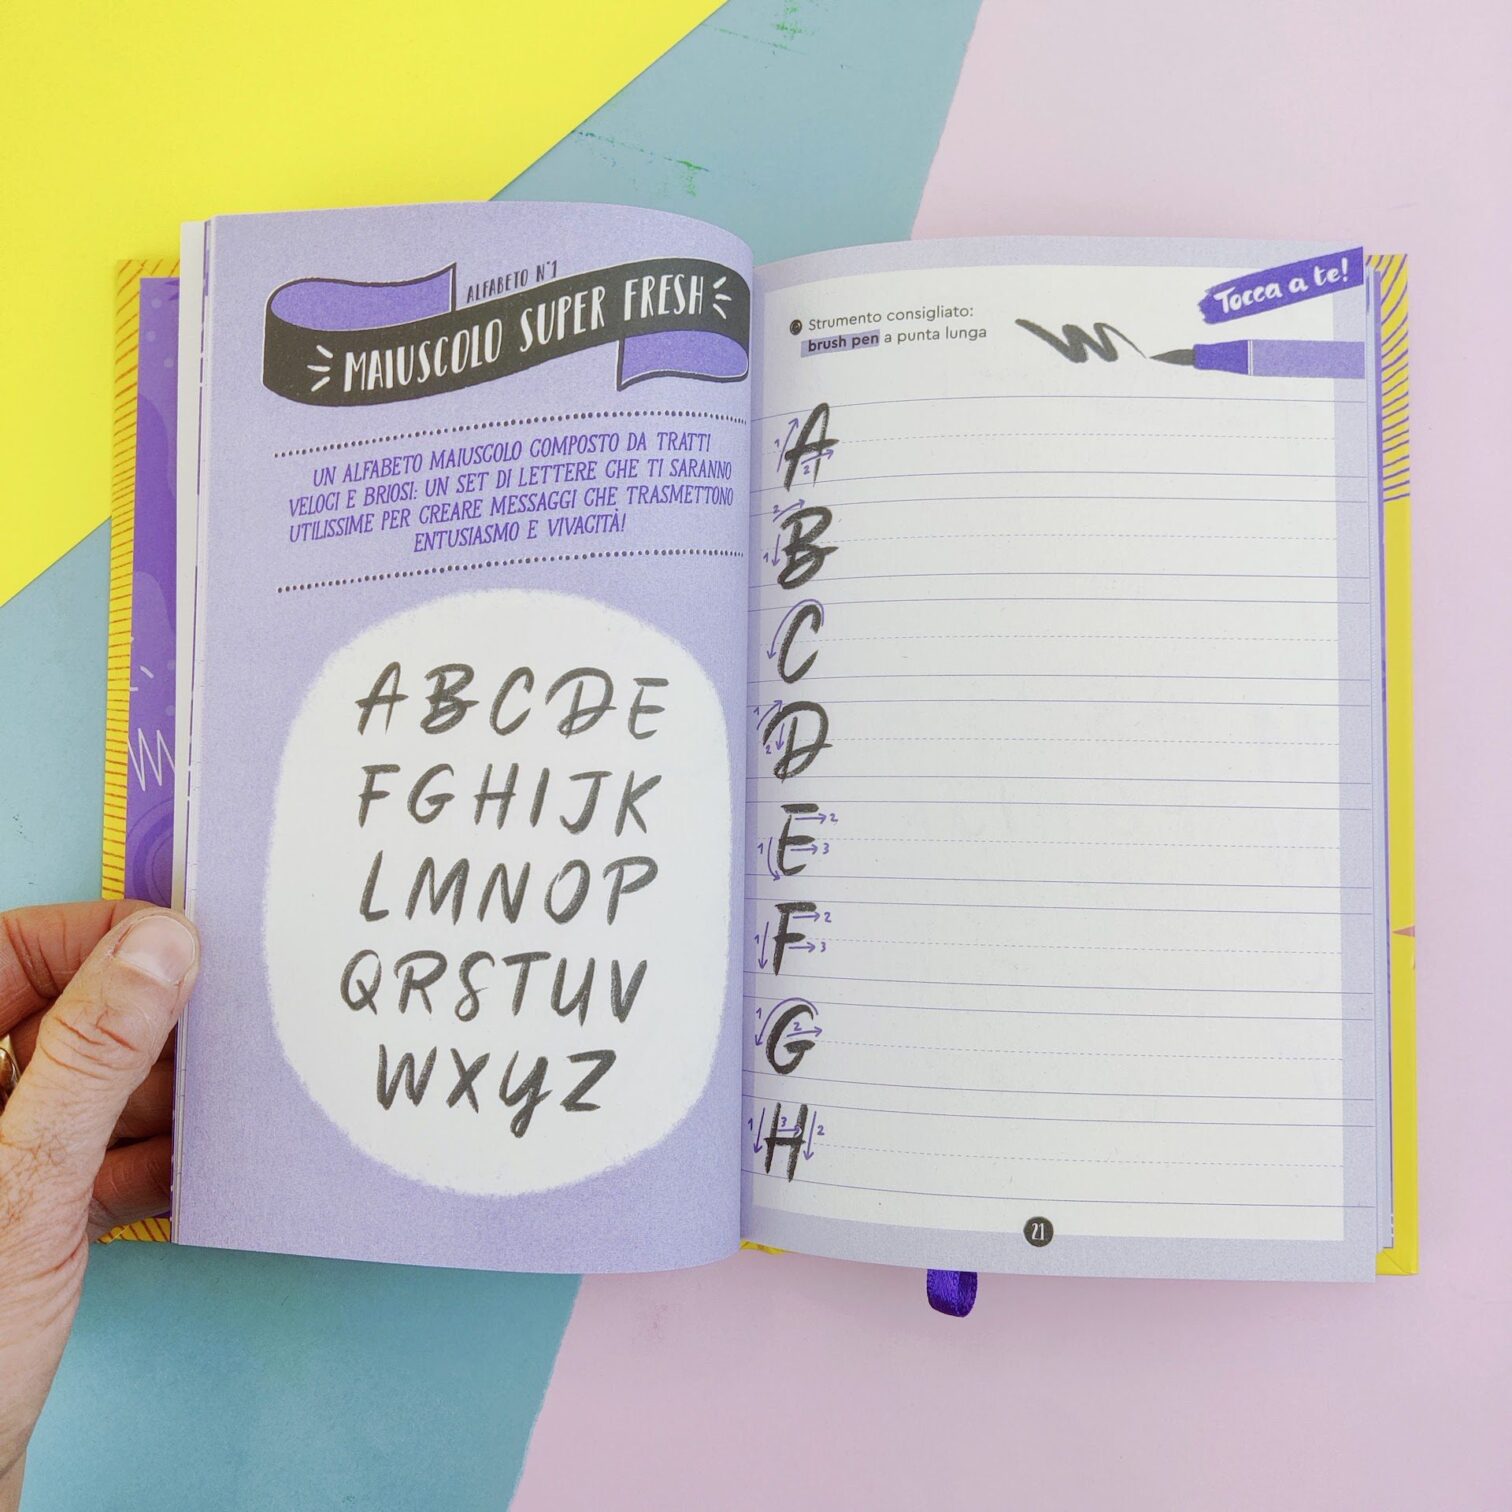 ALFABETO N°1
MAIUSCOLO SUPER FRESH
UN ALFABETO MAIUSCOLO COMPOSTO DA TRATTI
VELOCI E BRIOSI: UN SET DI LETTERE CHE TI SARANNO
UTILISSIME PER CREARE MESSAGGI CHE TRASMETTONO
ENTUSIASMO E VIVACITÀ!
A B C D E
F G H I J K
L M N O P
Q R S T U V
W X Y Z
Tocca a te!
Strumento consigliato:
brush pen a punta lunga
1 A 2
2 1 B
C
1 2 D
E 2
1 3
F 2
1 3
1 G 2
1 H 3 2
21